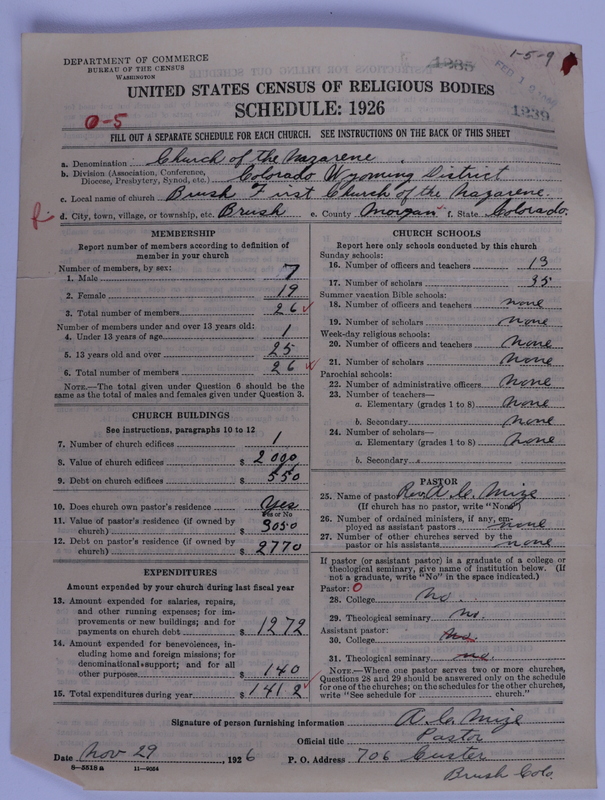 DEPARTMENT OF COMMERCE
BUREAU OF THE CENSUS
WASHINGTON
1-5-9
1235
FEB 1
1239
UNITED STATES CENSUS OF RELIGIOUS BODIES
SCHEDULE: 1926
0-5
FILL OUT A SEPARATE SCHEDULE FOR EACH CHURCH. SEE INSTRUCTIONS ON THE BACK OF THIS SHEET
a. Denomination Church of the Nazarene
b. Division (Association, Conference, Diocese, Presbytery, Synod, etc.) Colorado Wyoming District
c. Local name of church Brush First Church of the Nazarene.
d. City, town, village, or township, etc. Brush e. County Morgan f. State Colorado.
MEMBERSHIP
Report number of members according to definition of
member in your church
Number of members, by sex:
1. Male 7
2. Female 19
3. Total number of members 26
Number of members under and over 13 years old:
4. Under 13 years of age 1
5. 13 years old and over 25
6. Total number of members 26
NOTE.—The total given under Question 6 should be the
same as the total of males and females given under Question 3.
CHURCH BUILDINGS
See instructions, paragraphs 10 to 12
7. Number of church edifices 1
8. Value of church edifices $ 2000
9. Debt on church edifices $ 550
10. Does church own pastor's residence Yes
Yes or No
11. Value of pastor's residence (if owned by
church) $ 3050
12. Debt on pastor's residence (if owned by
church) $ 2770
EXPENDITURES
Amount expended by your church during last fiscal year
13. Amount expended for salaries, repairs,
and other running expenses; for im-
provements or new buildings; and for
payments on church debt $ 1272
14. Amount expended for benevolences, in-
cluding home and foreign missions; for
denominational support; and for all
other purposes $ 140
15. Total expenditures during year $ 1412
CHURCH SCHOOLS
Report here only schools conducted by this church
Sunday schools:
16. Number of officers and teachers 13
17. Number of scholars 35
Summer vacation Bible schools:
18. Number of officers and teachers none
19. Number of scholars none
Week-day religious schools:
20. Number of officers and teachers none
21. Number of scholars none
Parochial schools:
22. Number of administrative officers none
23. Number of teachers—
a. Elementary (grades 1 to 8) none
b. Secondary none
24. Number of scholars—
a. Elementary (grades 1 to 8) none
b. Secondary
PASTOR
25. Name of pastor Rev. A. C. Mize
(If church has no pastor, write "None")
26. Number of ordained ministers, if any, em-
ployed as assistant pastors none
27. Number of other churches served by the
pastor or his assistants none
If pastor (or assistant pastor) is a graduate of a college or
theological seminary, give name of institution below. (If
not a graduate, write "No" in the space indicated.)
Pastor: 0
28. College no.
29. Theological seminary no.
Assistant pastor:
30. College no.
31. Theological seminary no.
NOTE.—Where one pastor serves two or more churches,
Questions 28 and 29 should be answered only on the schedule
for one of the churches; on the schedules for the other churches,
write "See schedule for church."
Signature of person furnishing information A. C. Mize
Official title Pastor
Date Nov 29, 1926 P. O. Address 706 Custer
8—5518 a 11—9024
Brush Colo.